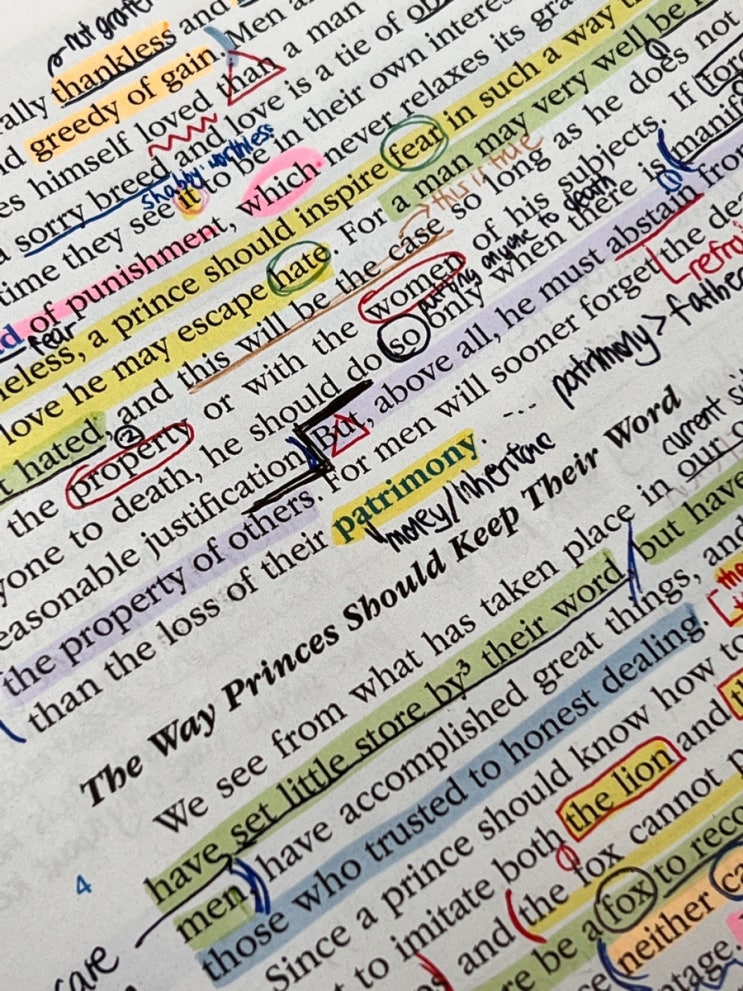 not
thankless and
greedy of gain. Men
himself loved than a man
sorry breed and love is a tie of
shabby, worthless
time they see it to be in their own interest
of punishment, which never relaxes its
fear
a prince should inspire fear in such a way
love he may escape hate. For a man may very well be
this is true
hated, and this will be the case so long as he does not
2
the property or with the women of his subjects. If
putting anyone to death
to death, he should do so only when there is
justification. But, above all, he must abstain
the property of others. For men will sooner forget the
than the loss of their patrimony. ... patrimony > father
money/inheritance
The Way Princes Should Keep Their Word
current
We see from what has taken place in our
have set little store by³ their word, but have
men, have accomplished great things, and
4
those who trusted to honest dealing.
Since a prince should know how to
to imitate both the lion and
and the fox cannot
be a fox to
neither
care